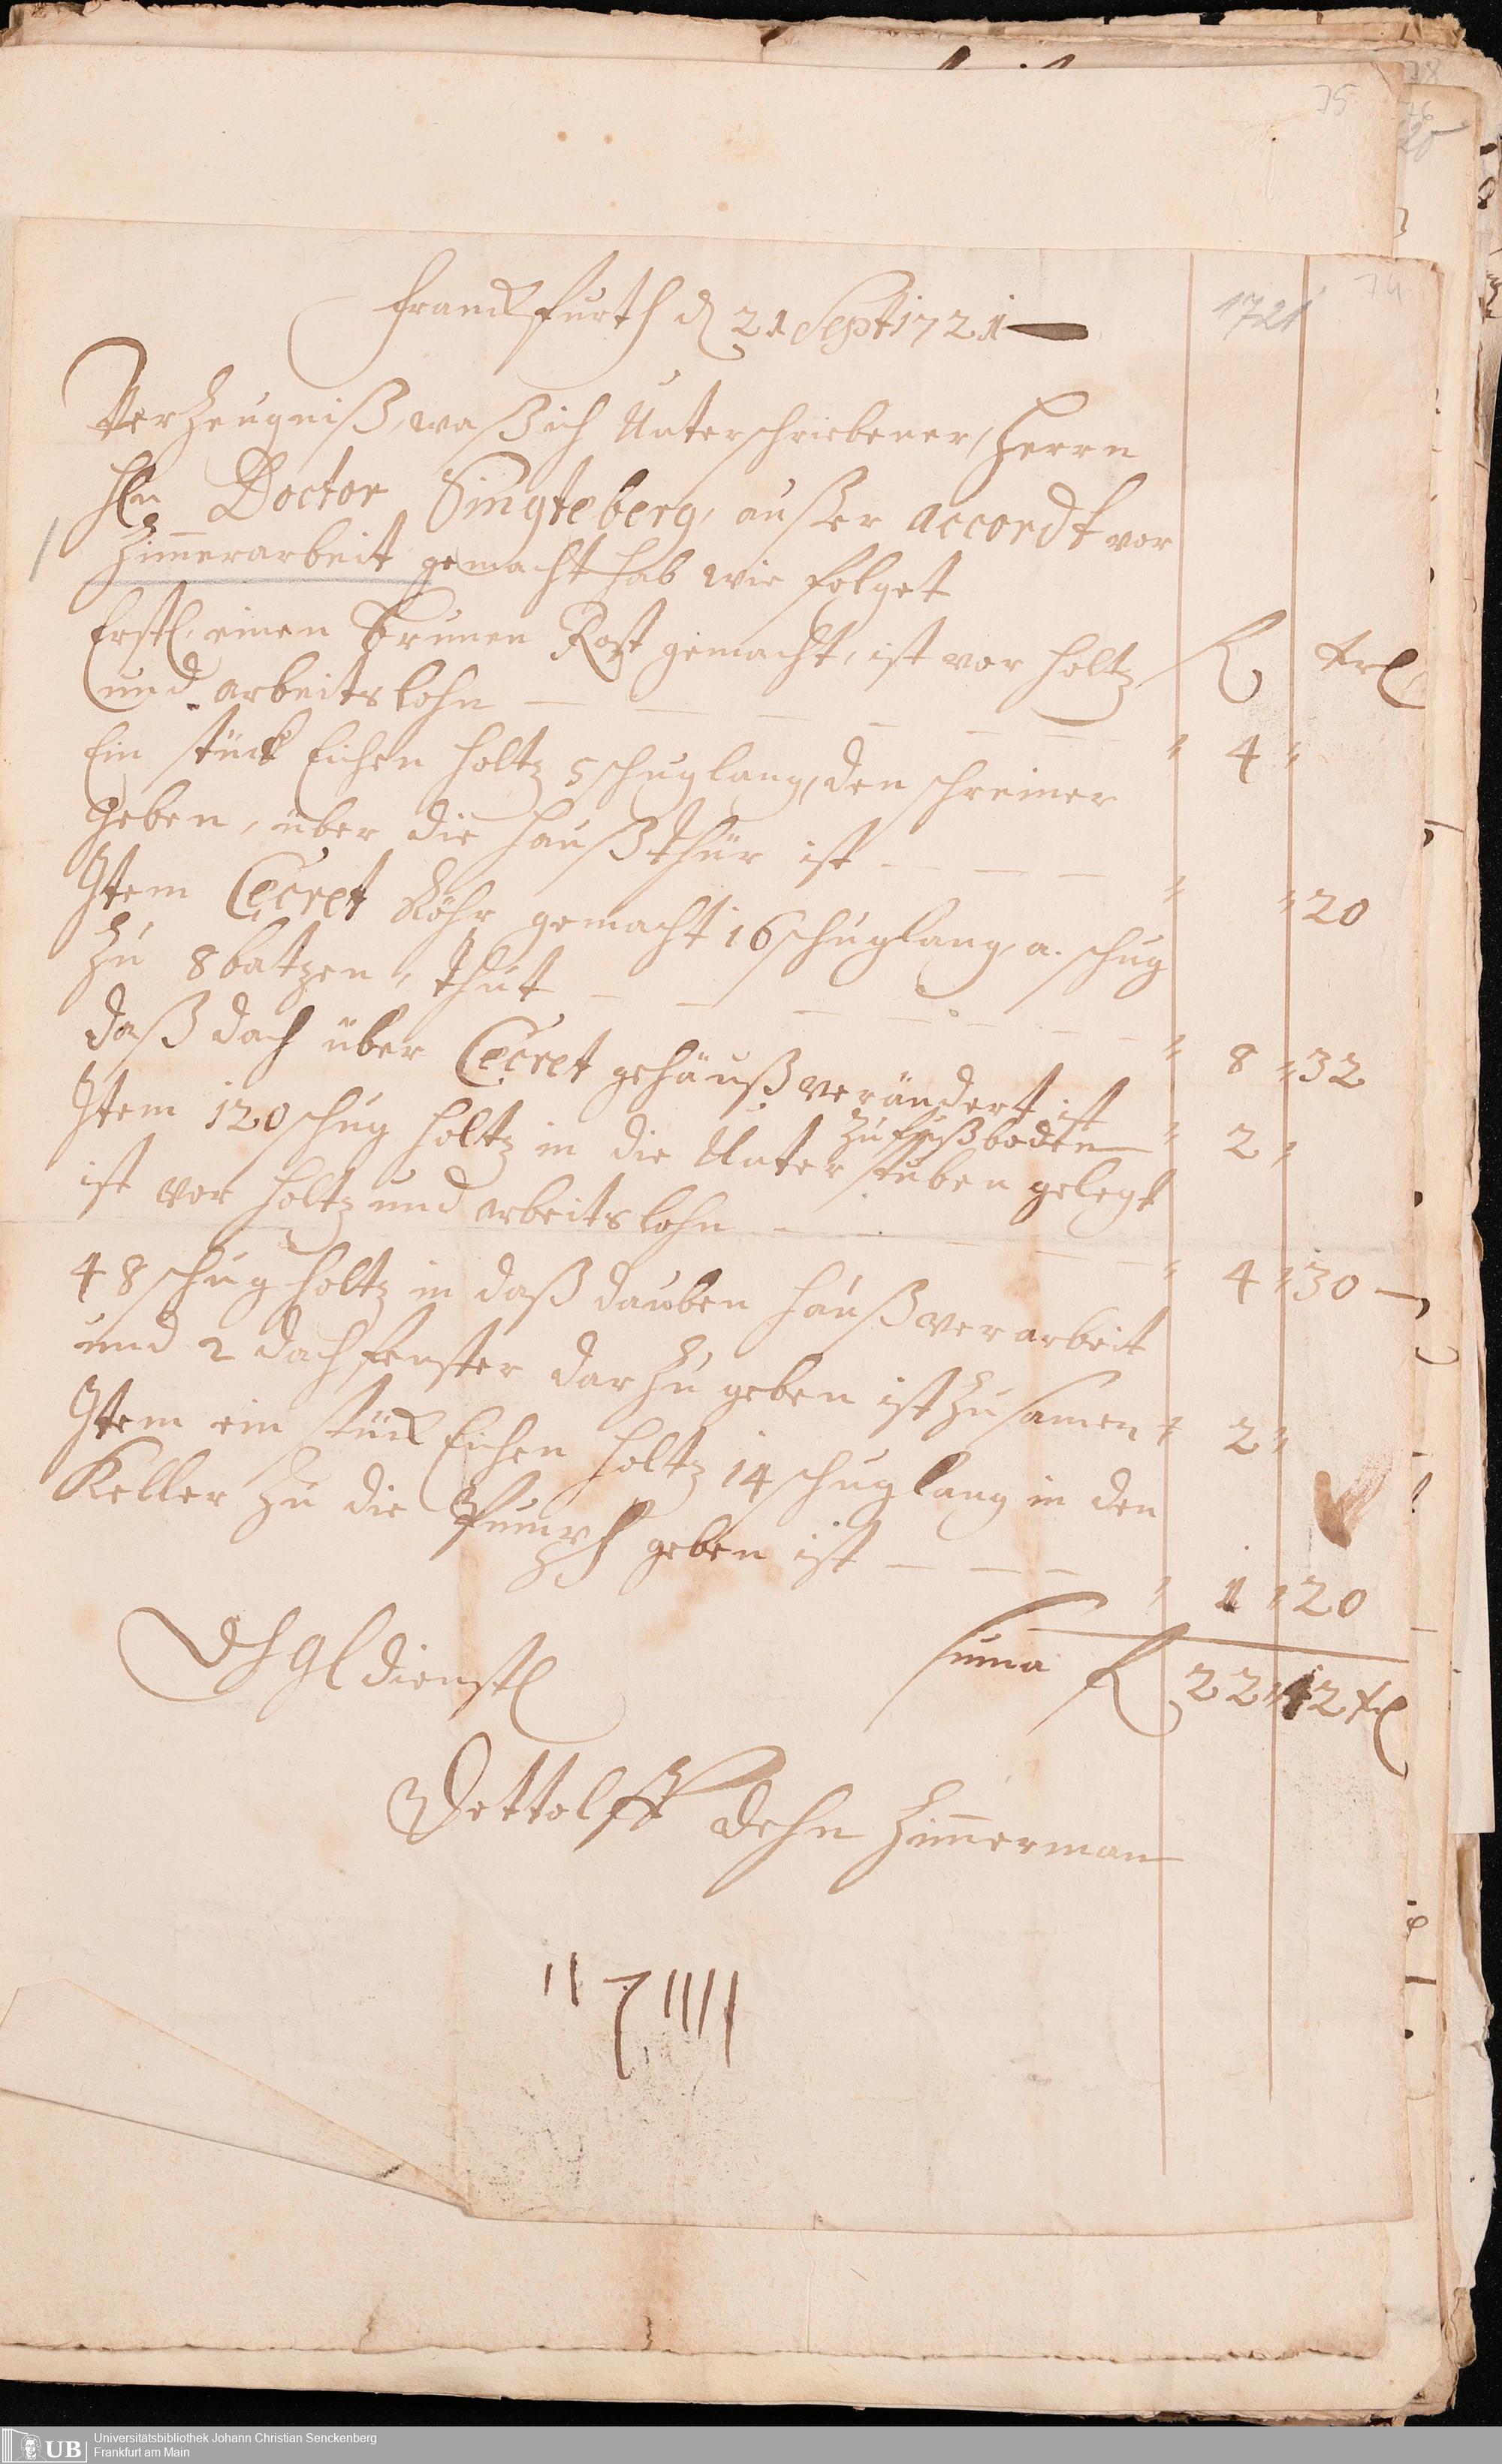 75
74
1721
Franckfurth d 21 Sept 1721
Verzeugniß, waß ich Unterschriebener, Herrn
Hln Doctor Singteberg, außer accordt vor
Zimmerarbeit gemacht hab wie folget
Erstl. einen brunen Rost gemacht, ist vor holtz fl krl
und arbeitslohn — — — — — — " 4 "
Ein stück Eichen holtz 5 schug lang, den schreiner
geben, über die haußthür ist — — — — " " 20
Item Cecret Röhr gemacht 16 schuglang, a. schug
zu 8 batzen, thut — — — — — — " 8 " 32
daß dach über Cecret gehäuß verändert ist " 2 "
zu fußboden
Item 120 schug holtz in die Unter stuben gelegt
ist vor holtz und arbeitslohn — — — — " 4 " 30 —
48 schug holtz in daß dauben hauß verarbeit
und 2 dachfenster dar zu geben ist zu samen " 2 "
Item ein stück Eichen holtz 14 schug lang in den
Keller zu die geben ist — — — " 1 " 20
suma fl 22 " 42 krl
dienstl
Dettolff Dehn Zimmerman
Universitätsbibliothek Johann Christian Senckenberg
Frankfurt am Main
UB